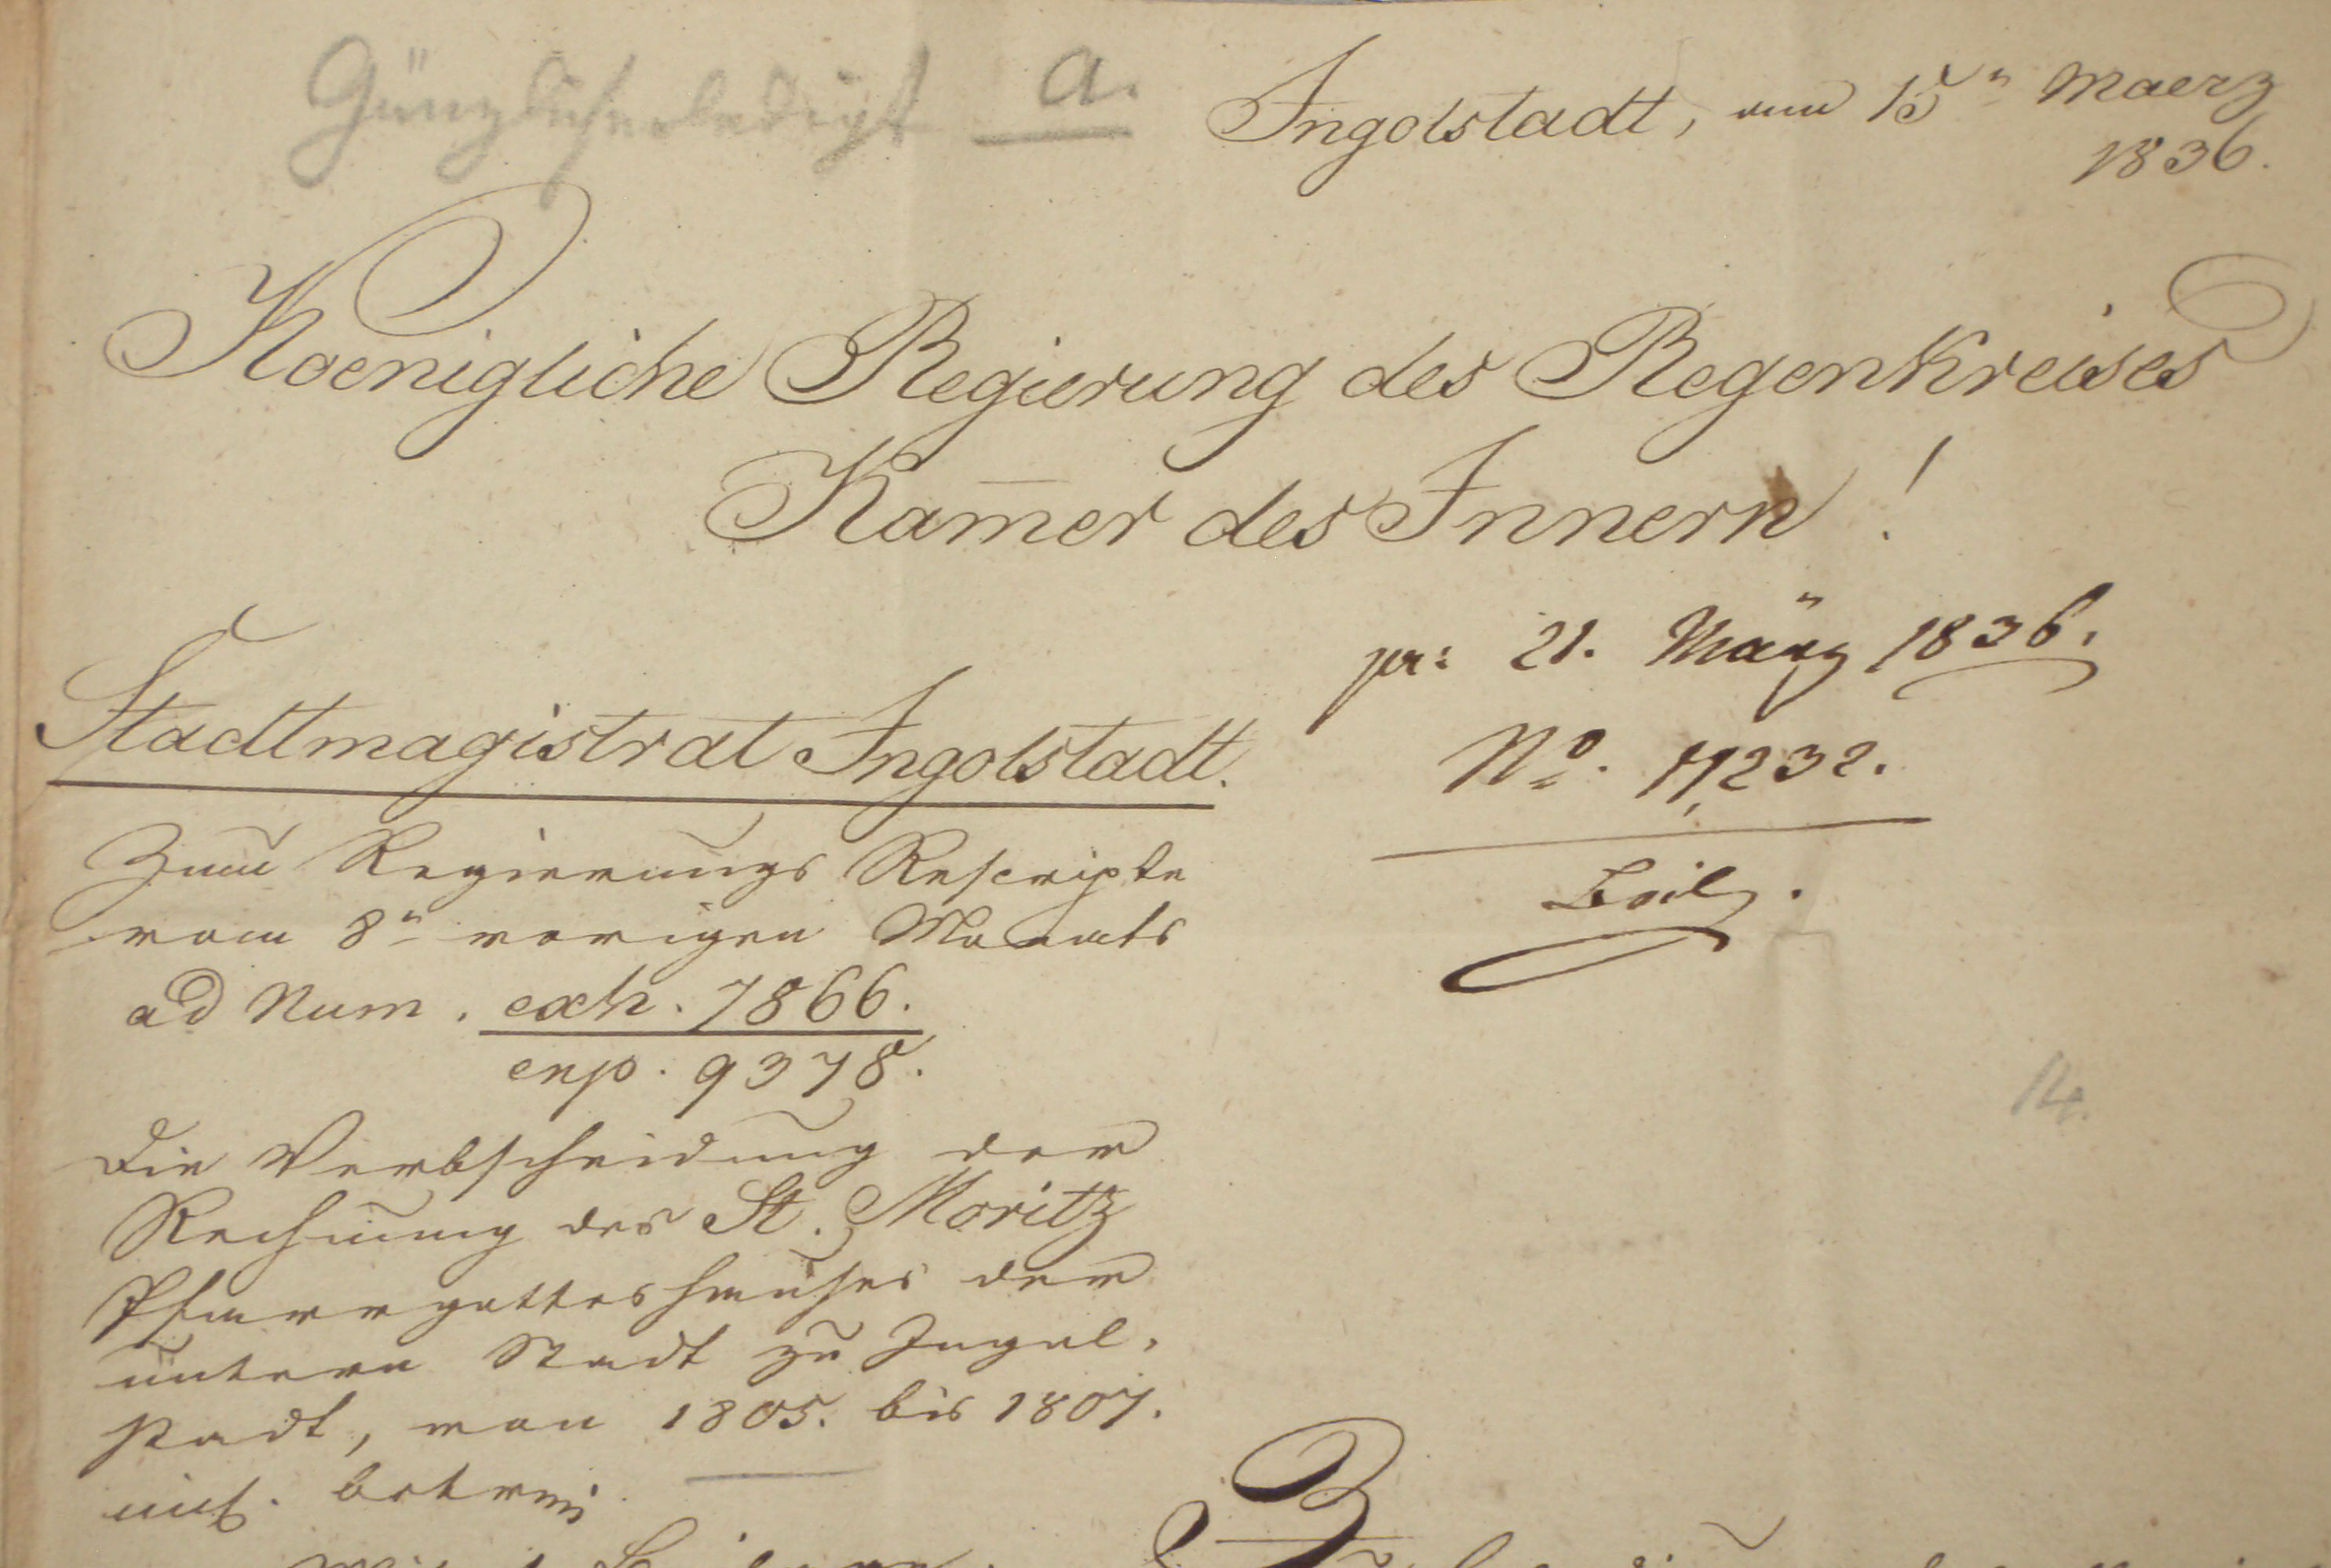 Gänzlich erledigt a.
Ingolstadt, am 15n Maerz
1836.
Koenigliche Regierung des Regenkreises
Kam̅er des Innern!
pr: 21. März 1836.
No. 17,232.
Beil.
Stadtmagistrat Ingolstadt.
Zum Regierungs Rescripte
vom 8n vorigen Monats
ad Num. exh. 7866.
exp. 9378.
Die Verbscheidung der
Rechnung des St. Moritz
Pfarrgotteshauses der
untern Stadt zu Ingol-
stadt, von 1805. bis 1807.
betr.
14.